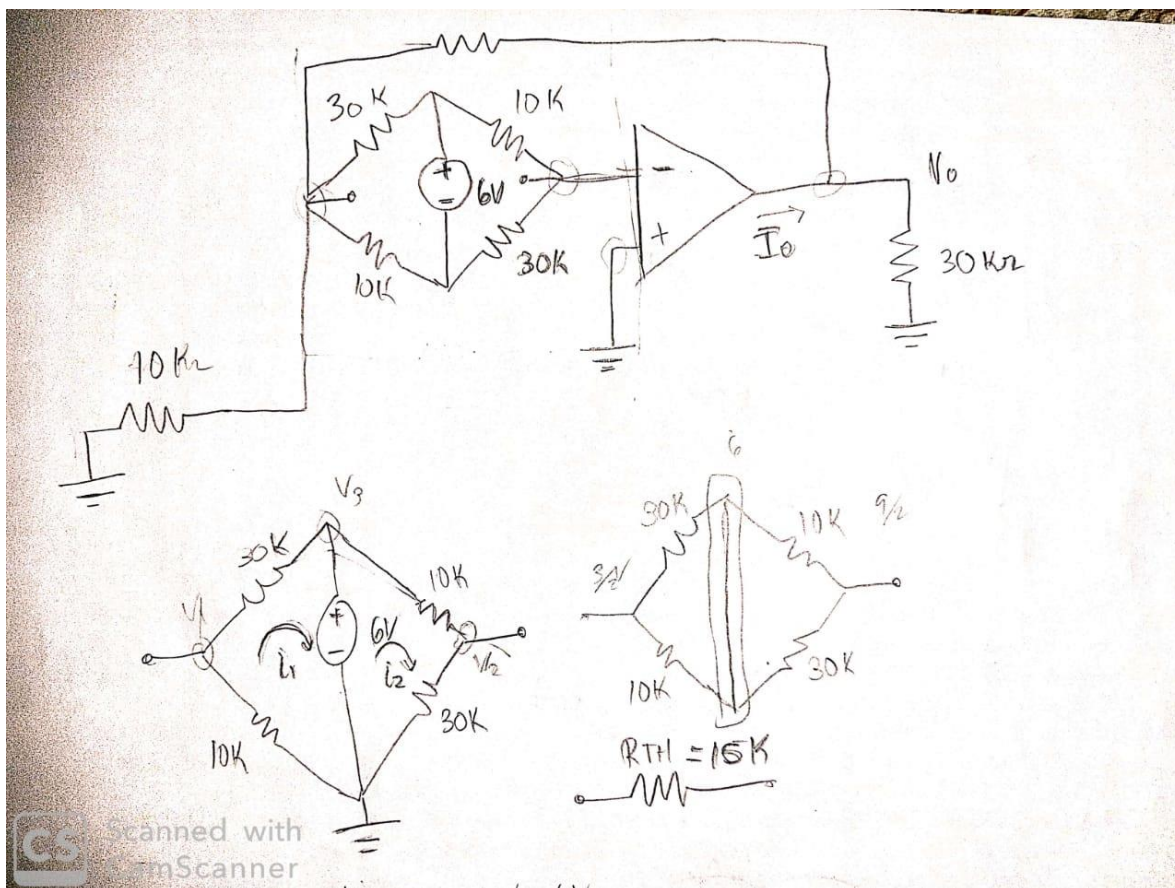 30K
10K
+
-
6V
10K
30K
-
+
I0
V0
30KΩ
10KΩ
V3
30K
10K
V1
+
-
6V
i1
i2
V2
10K
30K
6
30K
10K
9/2
3/2
10K
30K
RTH = 15K
CS Scanned with
CamScanner